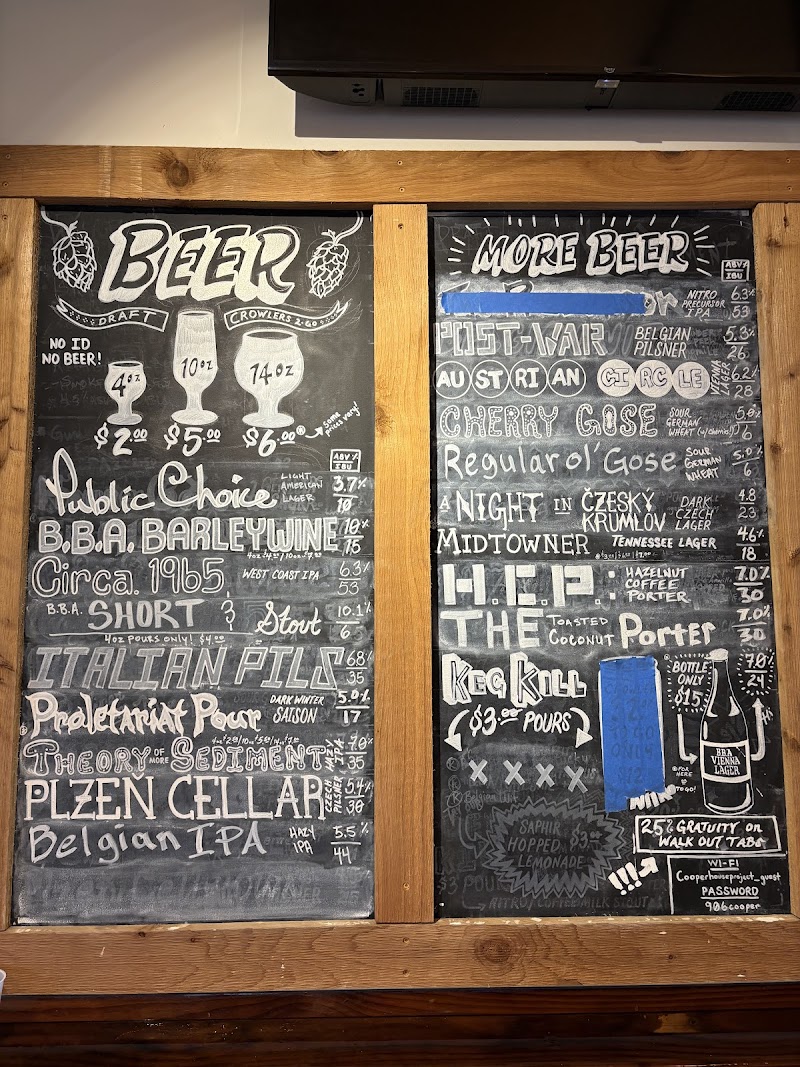 BEER
DRAFT
CROWLERS 2-GO
NO ID
NO BEER!
4oz 10oz 14oz
$2.00 $5.00 $6.00*
some prices vary!
ABV%
IBU
Public Choice LIGHT AMERICAN LAGER 3.7% 10
B.B.A. BARLEYWINE 10% 15
4oz $4.00/10oz $7.00
Circa. 1965 WEST COAST IPA 6.3% 53
B.B.A. SHORT & Stout 10.1% 6
4oz POURS ONLY! $4.00
ITALIAN PILS 6.8% 35
Proletariat Pour DARK WINTER SAISON 5.0% 17
THEORY OF MORE SEDIMENT HAZY IPA 7.0% 35
PLZEN CELLAR CZECH PILSNER 5.4% 30
Belgian IPA HAZY IPA 5.5% 44
MORE BEER
ABV%
IBU
NITRO PRECURSOR IPA 6.3% 53
POST-WAR BELGIAN PILSNER 5.3% 26
AUSTRIAN CIRCLE VIENNA LAGER 6.2% 28
CHERRY GOSE SOUR GERMAN WHEAT 5.0% 6
Regular ol' Gose SOUR GERMAN WHEAT 5.0% 6
A NIGHT IN ČZESKÝ KRUMLOV DARK CZECH LAGER 4.8 23
MIDTOWNER TENNESSEE LAGER 4.6% 18
H.C.P.: HAZELNUT COFFEE PORTER 7.0% 30
THE TOASTED COCONUT Porter 7.0% 30
KEG KILL
$3.00 POURS
X X X X
BOTTLE ONLY $15
7.0%
24
BBA
VIENNA
LAGER
FOR HERE
TO GO!
SAPHIR $3.00
HOPPED
LEMONADE
25% GRATUITY ON
WALK OUT TABS
!!!
WI-FI
Cooperhouseproject_guest
PASSWORD
906cooper
NITRO/COFFEE MILK STOUT